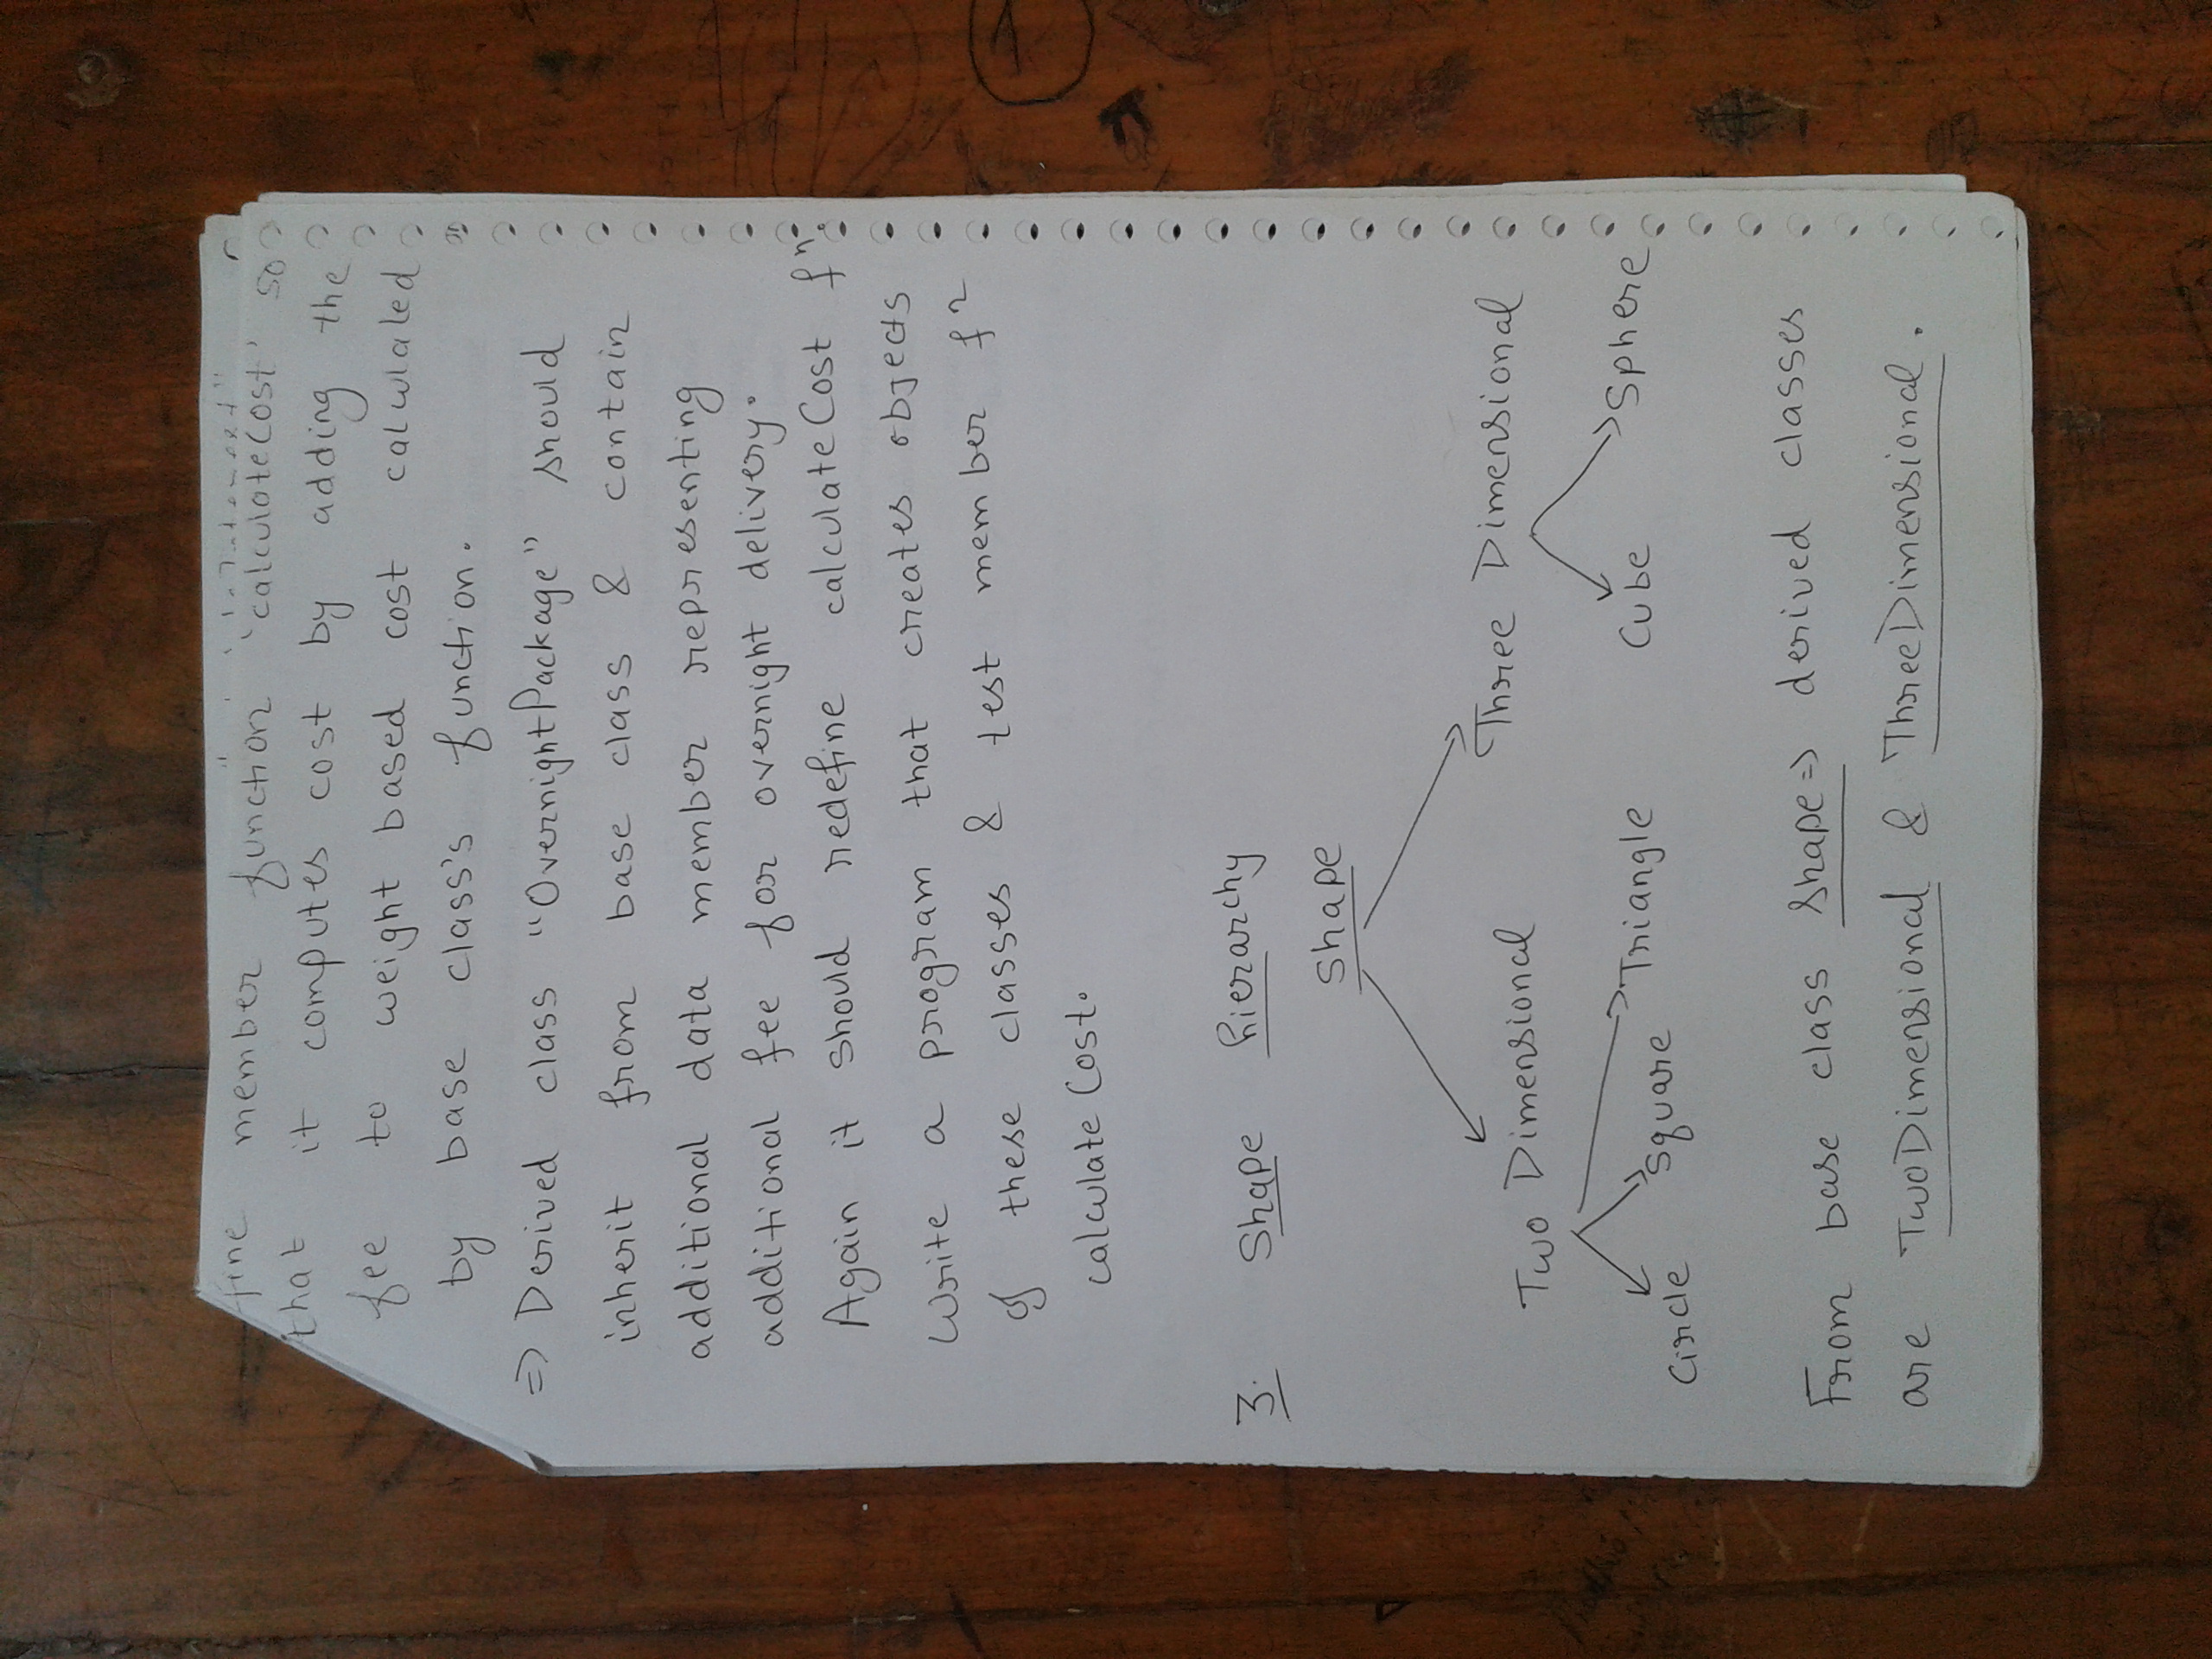 fine member function "calculateCost" so
that it computes cost by adding the
fee to weight based cost calculated
by base class's function.
⇒ Derived class "OvernightPackage" should
inherit from base class & contain
additional data member representing
additional fee for overnight delivery.
Again it should redefine calculateCost fn.
Write a program that creates objects
of these classes & test member fn
calculateCost.
3. Shape hierarchy
Shape
Two Dimensional Three Dimensional
Circle Square Triangle Cube Sphere
From base class shape ⇒ derived classes
are TwoDimensional & ThreeDimensional.